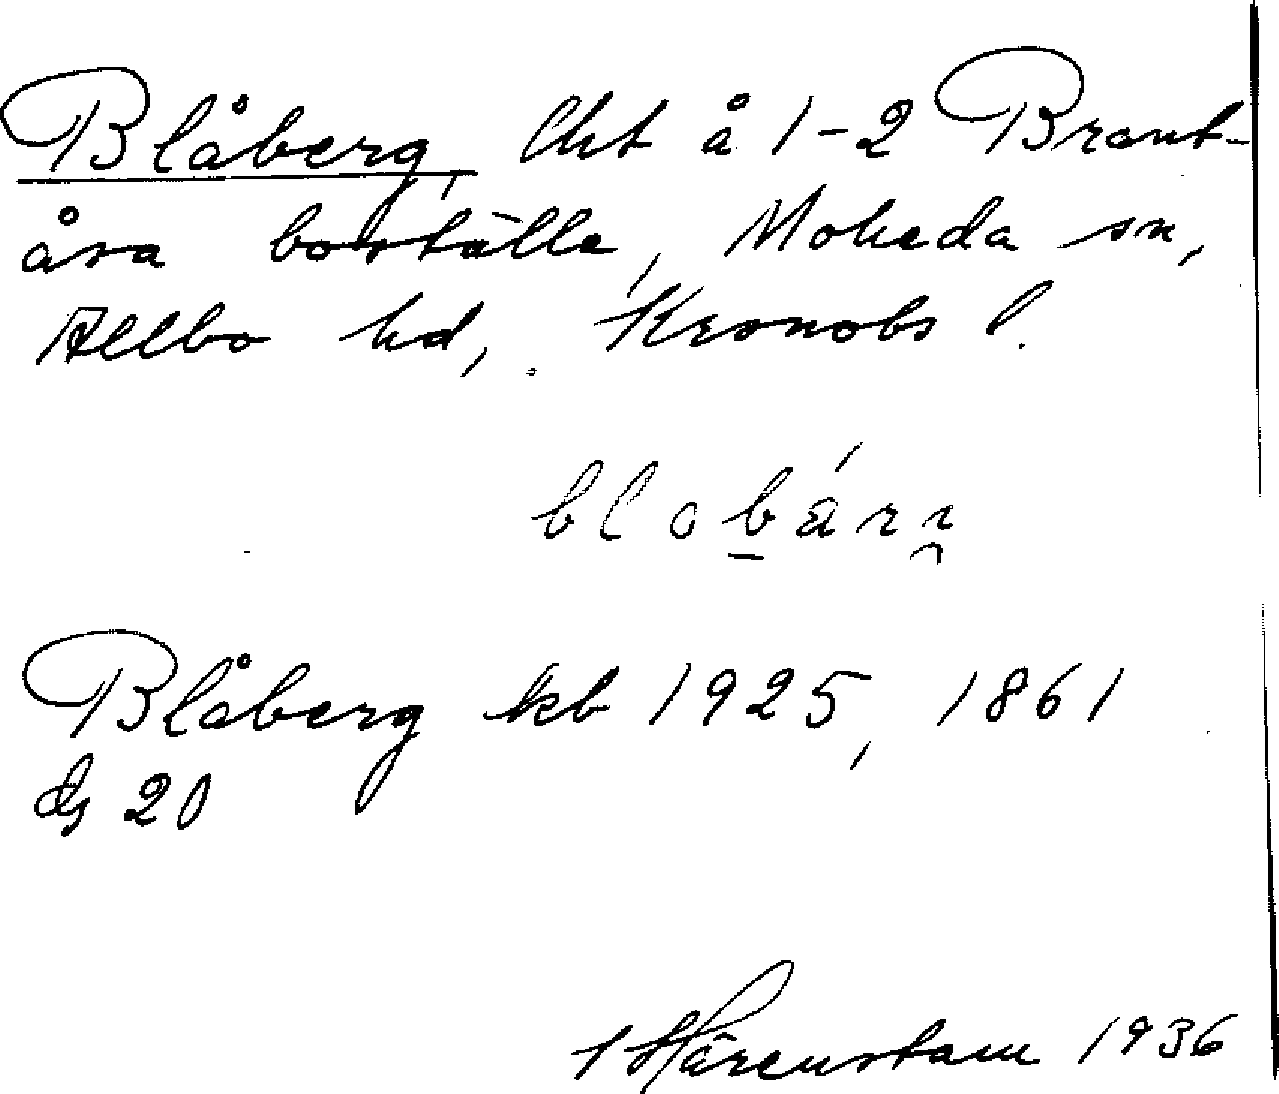 Blåberg, lht å 1-2 Brant-
åsa boställe, Moheda sn,
Allbo hd, Kronobs l.
blobárr
Blåberg kb 1925, 1861
ds 20
I Härenstam 1936